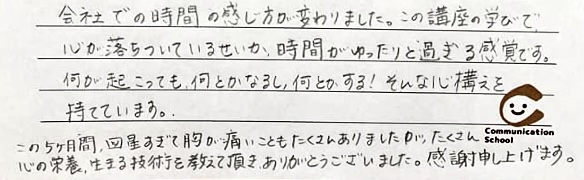 会社での時間の感じ方が変わりました。この講座の学びで
心が落ちついているせいか、時間がゆったりと過ぎる感覚です。
何が起こっても、何とかなるし、何とかする!そんな心構えを
持てています。
この5ヶ月間、図星すぎて胸が痛いこともたくさんありましたが、たくさん
心の栄養、生きる技術を教えて頂き、ありがとうございました。感謝申し上げます。
Communication
School